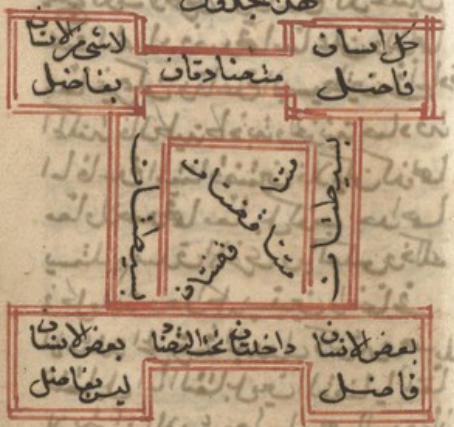 كل انسان
فاضل
متضادتان
لاشي من الانسان
بفاضل
بسيطتان
متناقضتان
متناقضتان
بسيطتان
بعض الانسان
فاضل
داخلتان تحت التضاد
بعض الانسان
ليس بفاضل